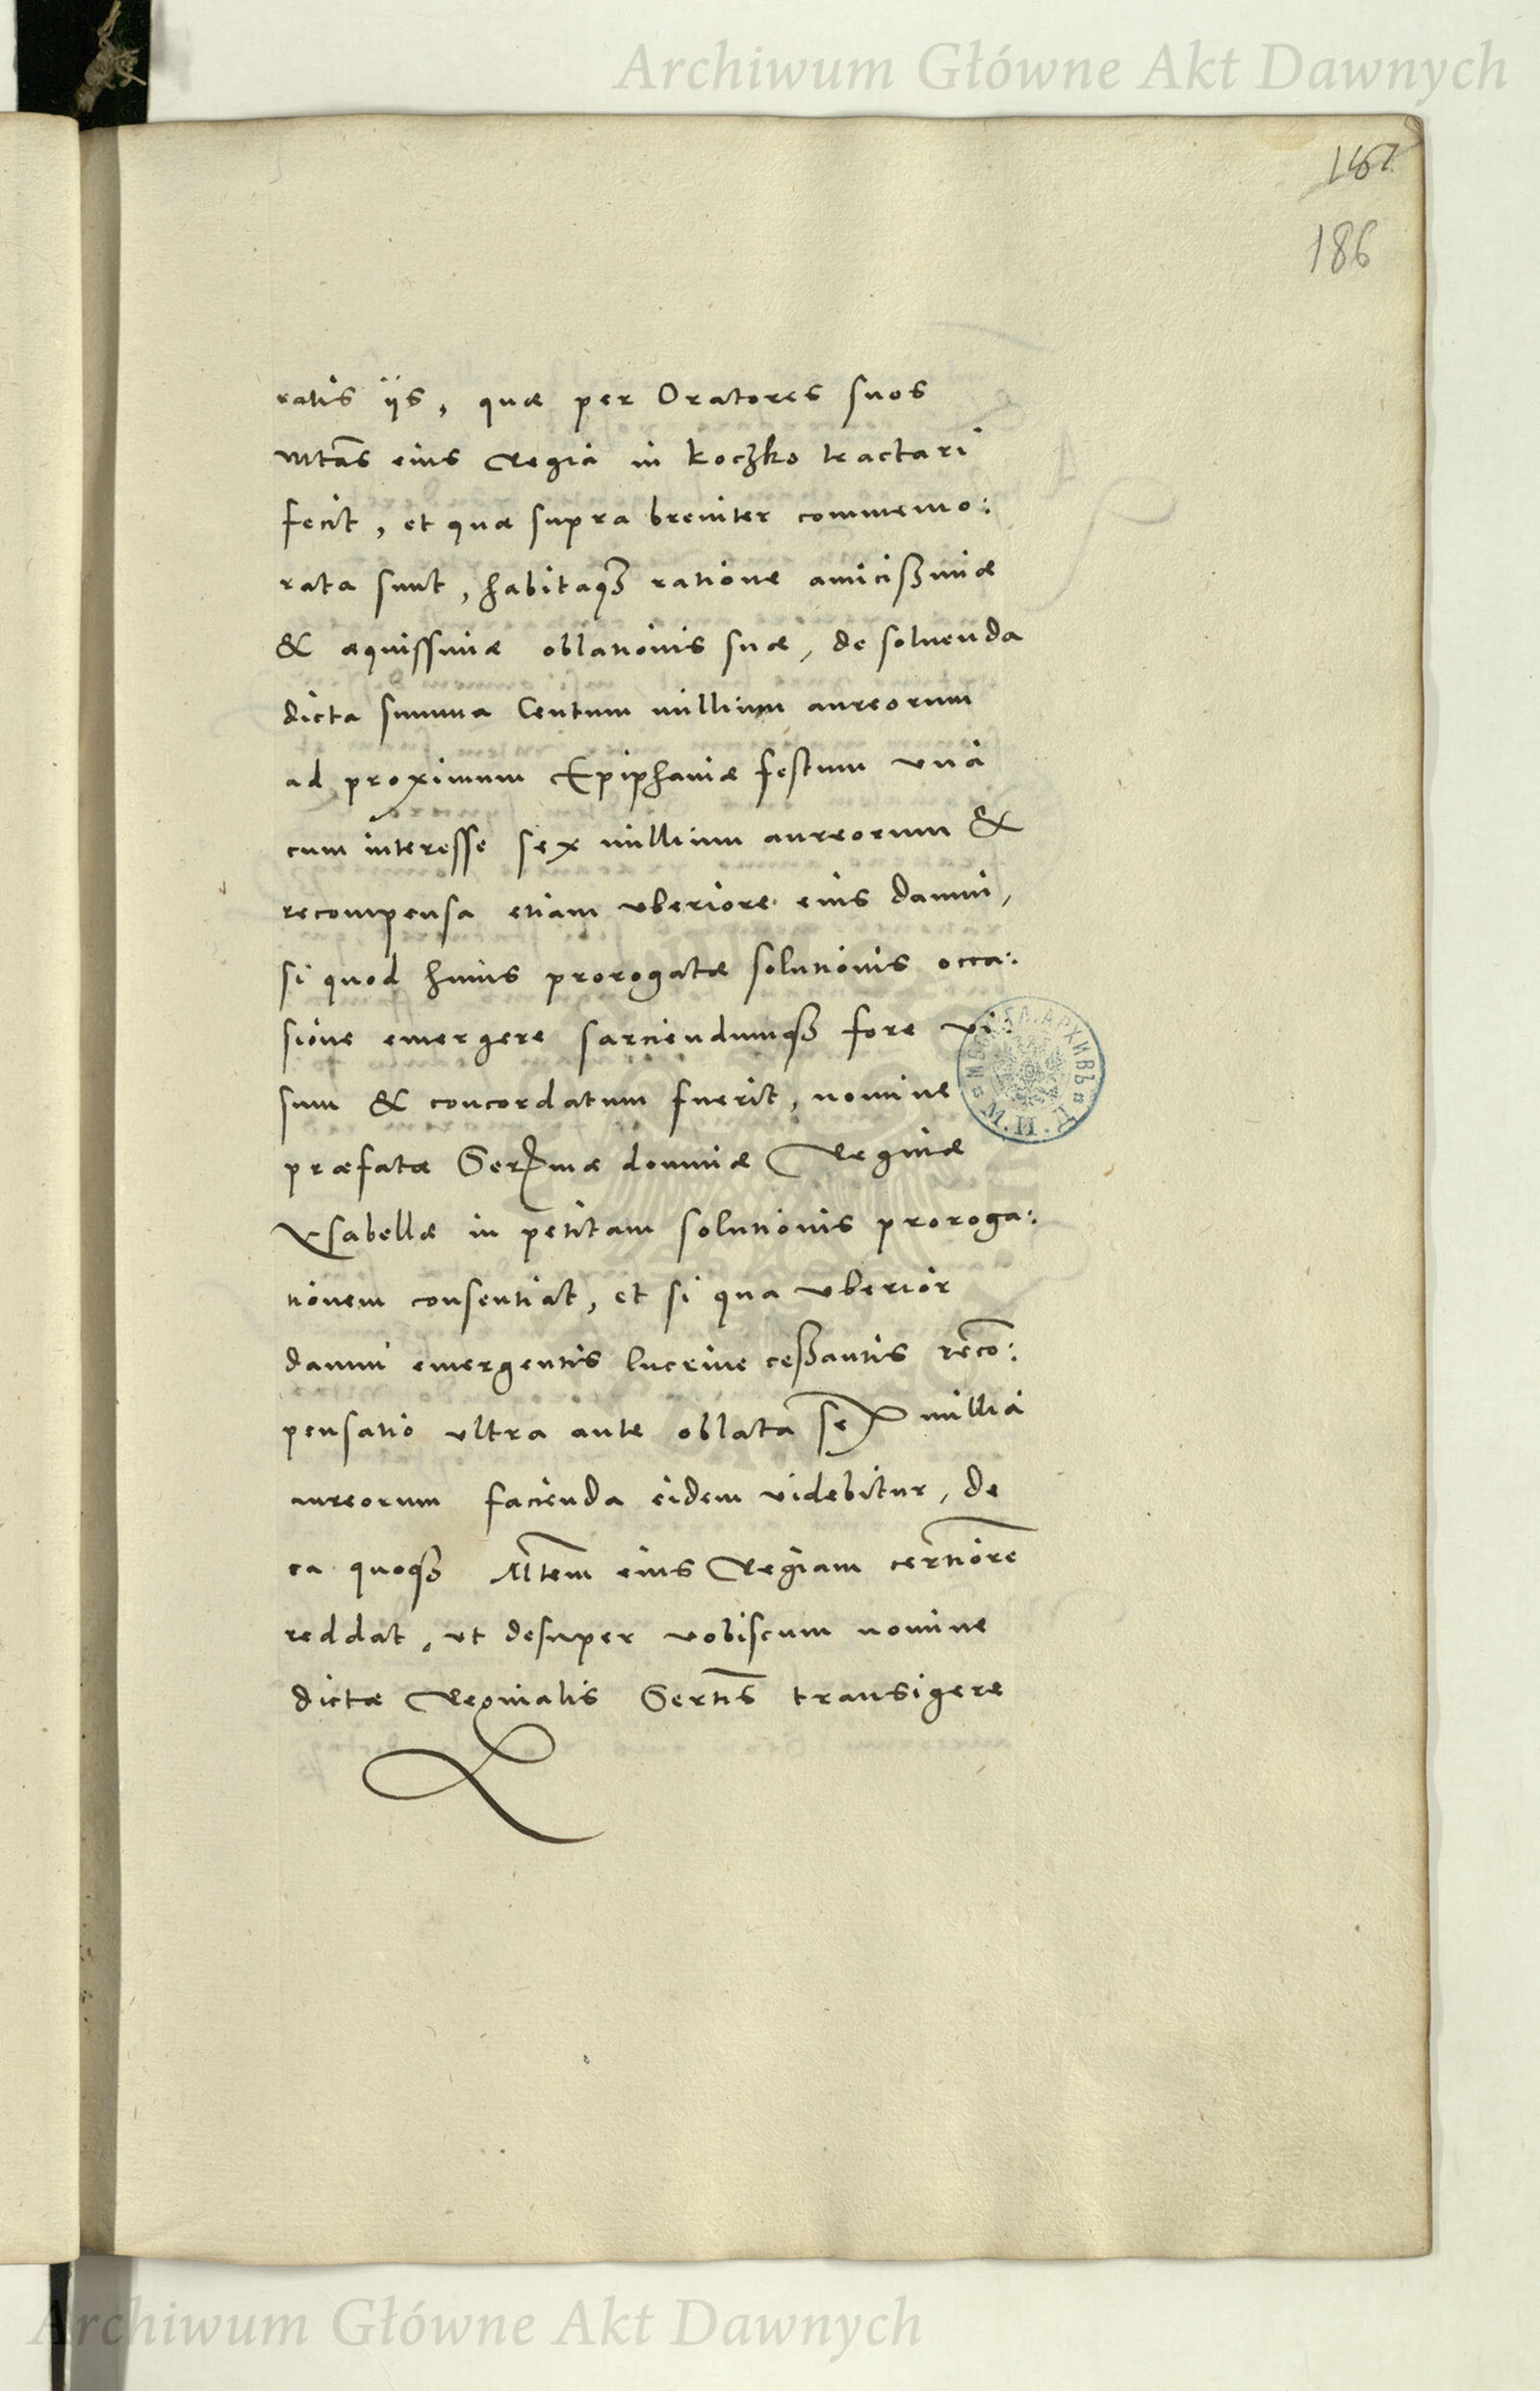 Archiwum Główne Akt Dawnych
186
ratis ijs, quæ per Oratores suos
Mtas eius Regia in Koczko tractari
fecit, et quæ supra breviter commemo:
rata sunt, habitaqз ratione amicißimæ
& æquissimæ oblationis suæ, de soluenda
dicta summa Centum millium aureorum
ad proximum Epiphaniæ festum unà
cum interesse sex millium aureorum &
recompensa etiam vberiore eius damni,
si quod huius prorogatæ solutionis occa:
sione emergere sarciendumqз fore vi:
sum & concordatum fuerit, nomine
præfatæ Sermæ dominæ Reginæ
Ysabellæ in petitam solutionis proroga:
tionem consentiat, et si qua vberior
damni emergentis lucrive ceßantis reco:
pensatio ultra ante oblata sex millia
aureorum facienda eidem videbitur, de
ea quoqз Mtem eius Regiam certiore
reddat, ut desuper vobiscum nomine
dictæ Reginalis Sertis transigere
Archiwum Główne Akt Dawnych